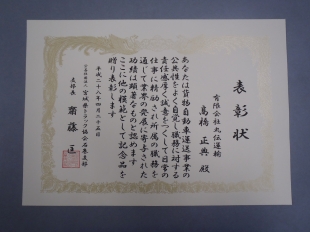 表彰状
有限会社丸伝運輸
高橋正典殿
あなたは貨物自動車運送事業の
公共性をよく自覚し職務に対する
責任感厚く誠意をつくして日常の
仕事に精励され所属の職務を
通じて業界の発展に寄与された
功績は顕著なものと認めます
ここに他の模範として記念品を
贈り表彰します
平成二十八年四月二十五日
宮城県トラック協会石巻支部
支部長 齋藤